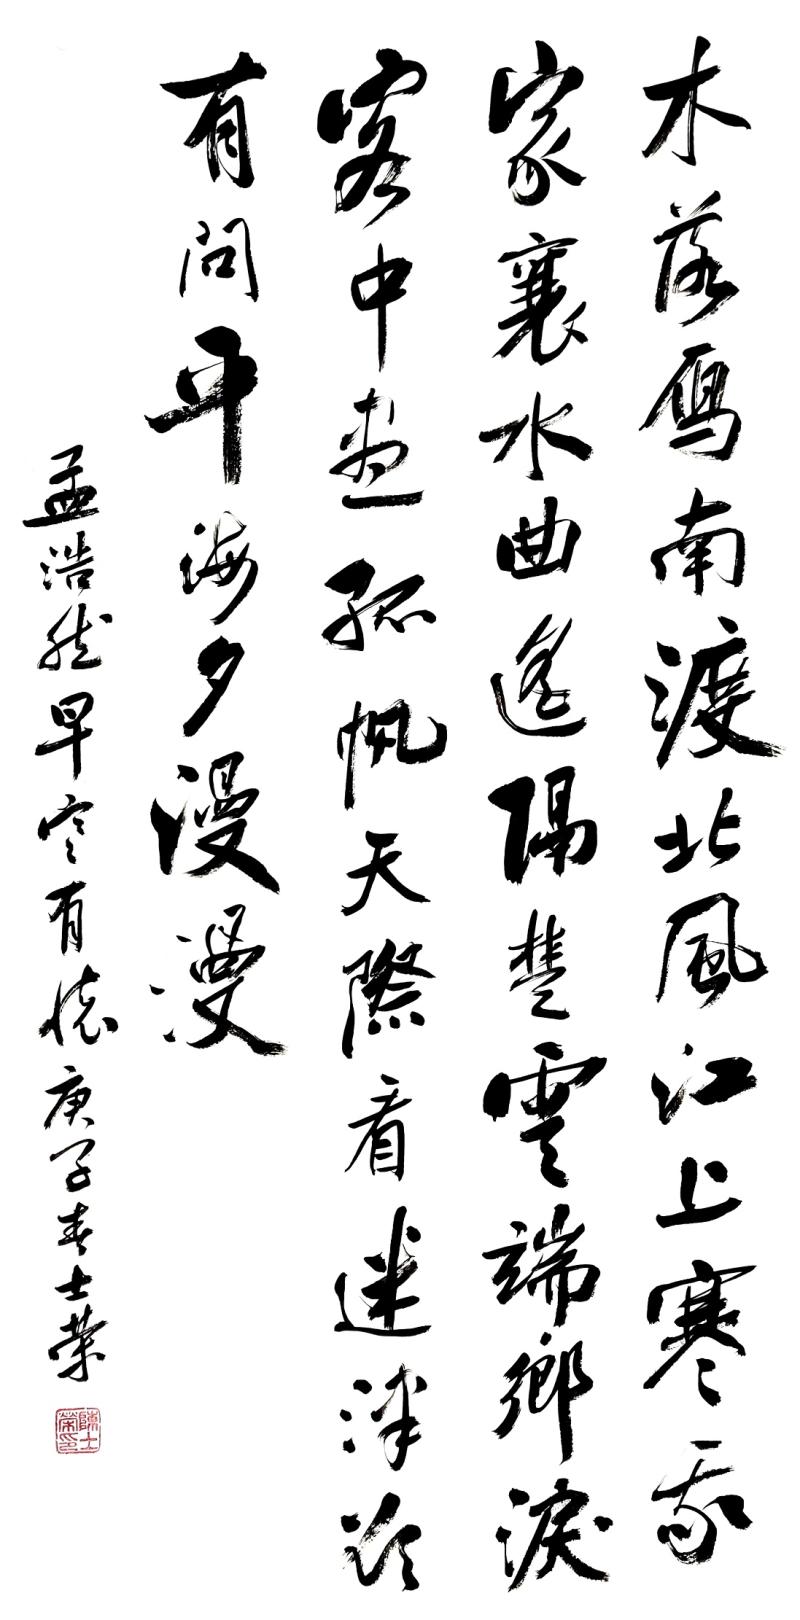 木落雁南渡北風江上寒我
家襄水曲遙隔楚雲端鄉淚
客中盡孤帆天際看迷津欲
有問平海夕漫漫
孟浩然早寒有懷庚子春士榮
陳士榮印